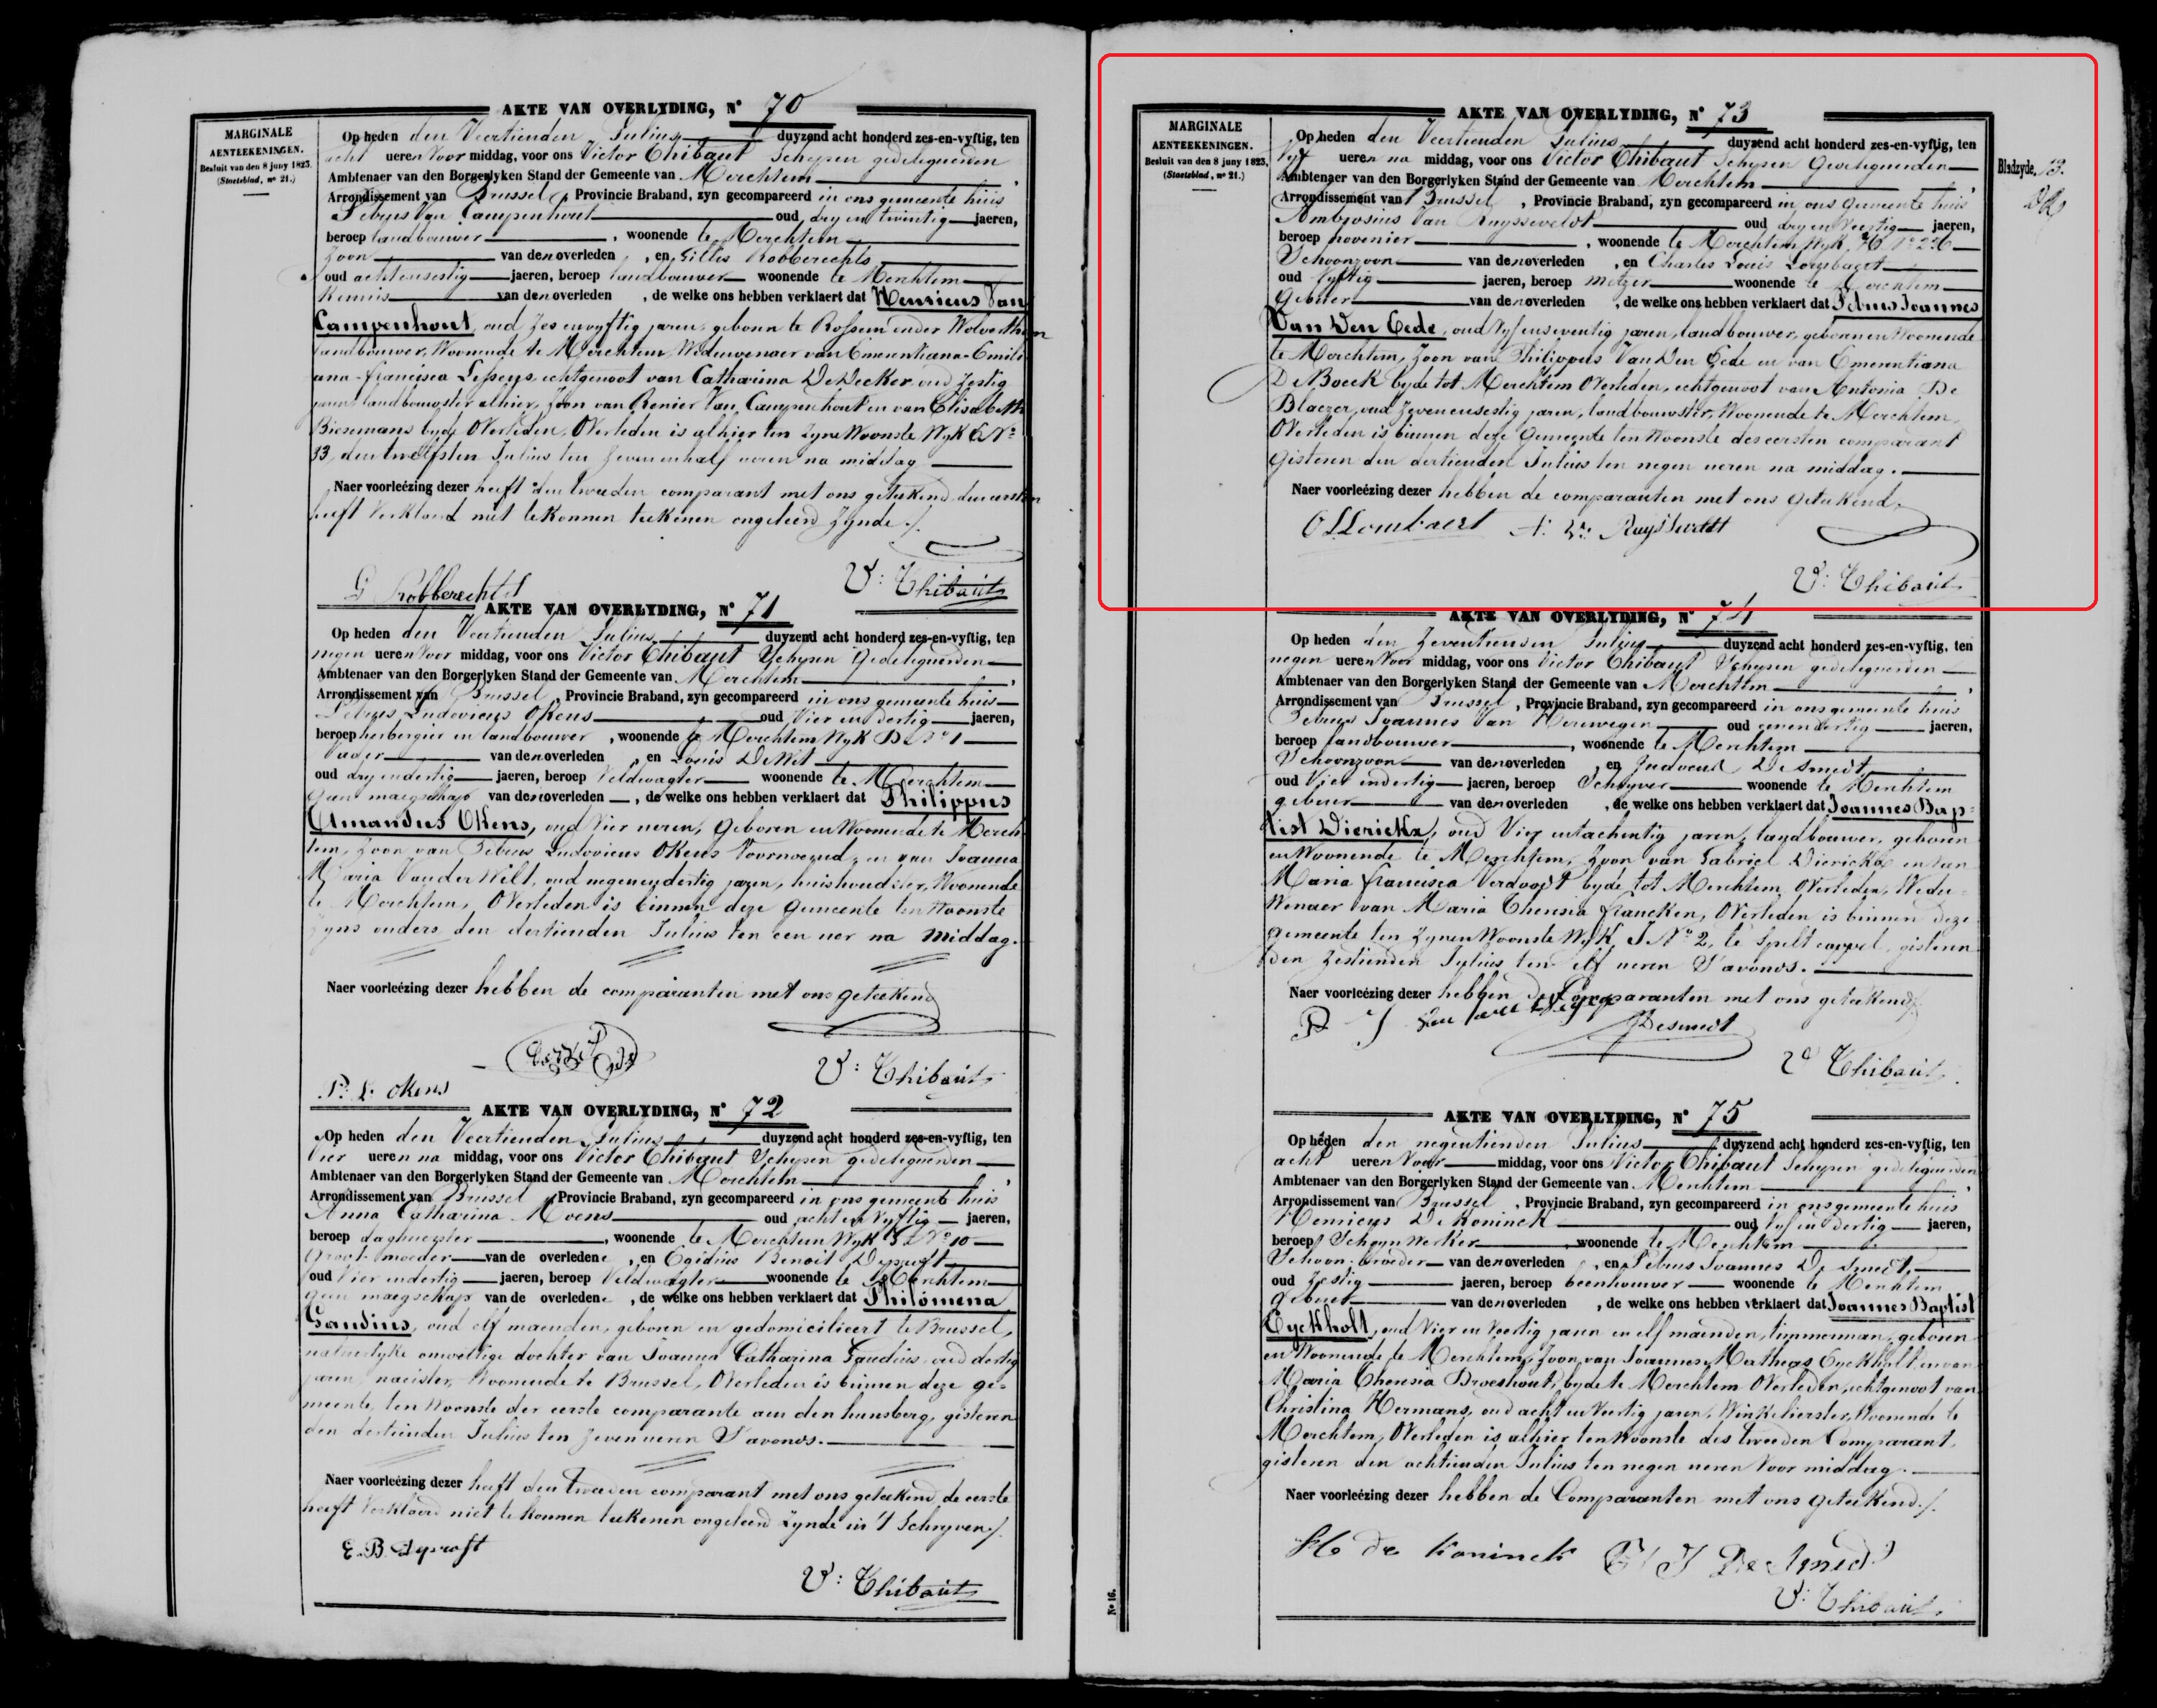 AKTE VAN OVERLYDING, N° 70
MARGINALE
AENTEEKENINGEN.
Besluit van den 8 juny 1823.
(Staetsblad, n° 21.)
Op heden den Veertienden Julius duyzend acht honderd zes-en-vyftig, ten
acht ueren Voor middag, voor ons Victor Thibaut Schepen gedelegueerden
Ambtenaer van den Borgerlyken Stand der Gemeente van Merchtem ,
Arrondissement van Brussel, Provincie Braband, zyn gecompareerd in ons gemeente huis
Petrus Van Campenhout oud dry en twintig jaeren,
beroep landbouwer , woonende te Merchtem
Zoon van den overleden , en Gillis Robberechts
oud achtensestig jaeren, beroep landbouwer woonende te Merchtem
Kennis van den overleden , de welke ons hebben verklaert dat Henricus Van
Campenhout, oud Zes envyftig jaren, geboren te Rossem onder Wolverthem
landbouwer, Woonende te Merchtem, Weduwenaer van Emerentiana-Emili
ana-francisca echtgenoot van Catharina DeDecker oud Zestig
jaren landbouwster alhier, Zoon van Renier Van Campenhout en van Elisabeth
Biesemans byde Overleden, Overleden is alhier ten Zyne Woonste Wyk N°
33, den twelfsten Julius ten Zevenenhalf ueren na middag
Naer voorleézing dezer heeft den tweeden comparant met ons geteekend den eersten
heeft Verklaerd niet te konnen teekenen ongeleerd Zynde ./.
G Robberechts
V: Thibaut
AKTE VAN OVERLYDING, N° 71
Op heden den Veertienden Julius duyzend acht honderd zes-en-vyftig, ten
negen ueren Voor middag, voor ons Victor Thibaut Schepen Gedelegueerden
Ambtenaer van den Borgerlyken Stand der Gemeente van Merchtem ,
Arrondissement van Brussel, Provincie Braband, zyn gecompareerd in ons gemeente huis
Petrus Ludovicus Okens oud Vier en dertig jaeren,
beroep herbergier en landbouwer , woonende te Merchtem Wyk B N° 1
Vader van den overleden , en Louis DeWit
oud dry endertig jaeren, beroep Veldwagter woonende te Merchtem
geen maegschap van den overleden , de welke ons hebben verklaert dat Philippus
Amandus Okens, oud Vier ueren, Geboren en Woonende te Merch
tem, Zoon van Petrus Ludovicus Okens Voornoemd, en van Joanna
Maria Vander Wilt, oud negenendertig jaren, huishoudster, Woonende
te Merchtem, Overleden is binnen deze gemeente ten Woonste
zyns ouders den dertienden Julius ten een uer na middag.
Naer voorleézing dezer hebben de comparanten met ons geteekend
P: L: Okens
V: Thibaut
AKTE VAN OVERLYDING, N° 72
Op heden den Veertienden Julius duyzend acht honderd zes-en-vyftig, ten
Vier ueren na middag, voor ons Victor Thibaut Schepen gedelegueerden
Ambtenaer van den Borgerlyken Stand der Gemeente van Merchtem ,
Arrondissement van Brussel, Provincie Braband, zyn gecompareerd in ons gemeente huis
Anna Catharina Moens oud acht en Vyftig jaeren,
beroep daghuerster , woonende te Merchtem Wyk N° 10
Groot-moeder van de overledene , en Egidius Benoit Dyprost
oud Vier endertig jaeren, beroep Veldwagter woonende te Merchtem
geen maegschap van de overledene , de welke ons hebben verklaert dat Philómena
Gaudius, oud elf maenden, geboren en gedomicilieert te Brussel,
natuerlyke onwettige dochter van Joanna Catharina Gaudius, oud dertig
jaren, naeister, Woonende te Brussel, Overleden is binnen deze ge-
meente, ten Woonste der eerste comparante aen den hunsberg, gisteren
den dertienden Julius ten Zeven ueren S'avonds.
Naer voorleézing dezer heeft den tweeden comparant met ons geteekend, de eerste
heeft Verklaerd niet te konnen teekenen ongeleerd Zynde in 't Schryven ./.
E. B. Dyprost
V: Thibaut
AKTE VAN OVERLYDING, N° 73
MARGINALE
AENTEEKENINGEN.
Besluit van den 8 juny 1823.
(Staetsblad, n° 21.)
Bladzyde, 13.
Op heden den Veertienden Julius duyzend acht honderd zes-en-vyftig, ten
Vyf ueren na middag, voor ons Victor Thibaut Schepen Gedelegueerden
Ambtenaer van den Borgerlyken Stand der Gemeente van Merchtem ,
Arrondissement van Brussel, Provincie Braband, zyn gecompareerd in ons Gemeente huis
Ambrosius Van Ruysseveldt oud dry en Veertig jaeren,
beroep hovenier , woonende te Merchtem Wyk H N° 226
Schoonzoon van den overleden , en Charles Louis Lombaert
oud Vyftig jaeren, beroep metzer woonende te Merchtem
Gebuer van den overleden , de welke ons hebben verklaert dat Petrus Joannes
Van Den Eede, oud Vyf enseventig jaren, landbouwer, geboren en Woonende
te Merchtem, Zoon van Philippus Van Den Eede en van Emerentiana
De Boeck byde tot Merchtem Overleden, echtgenoot van Antonia De
Blaezer, oud Zevenensestig jaren, landbouwster, Woonende te Merchtem,
Overleden is binnen deze Gemeente ten Woonste des eersten comparant
Gisteren den dertienden Julius ten negen ueren na middag.
Naer voorleézing dezer hebben de comparanten met ons Geteekend,
C L Lombaert A: Vn Ruysseveldt
V: Thibaut
AKTE VAN OVERLYDING, N° 74
Op heden den Zeventienden Julius duyzend acht honderd zes-en-vyftig, ten
negen ueren Voor middag, voor ons Victor Thibaut Schepen gedelegueerden
Ambtenaer van den Borgerlyken Stand der Gemeente van Merchtem ,
Arrondissement van Brussel, Provincie Braband, zyn gecompareerd in ons gemeente huis
Petrus Joannes Van Herrewegen oud eenendertig jaeren,
beroep landbouwer , woonende te Merchtem
Schoonzoon van den overleden , en Judocus De Smedt
oud Vier endertig jaeren, beroep Schryver woonende te Merchtem
gebuer van den overleden , de welke ons hebben verklaert dat Joannes Bap=
tist Dierickx, oud Vier entachentig jaren, landbouwer, geboren
en Woonende te Merchtem, Zoon van Gabriel Dierickx en van
Maria francisca Verdoodt byde tot Merchtem Overleden, Wedu-
Wenaer van Maria Theresia francken, Overleden is binnen deze
gemeente ten Zynen Woonste Wyk J N° 2, te Spelt cappel, gisteren
den Zestienden Julius ten elf ueren S'avonds.
Naer voorleézing dezer hebben de Comparanten met ons geteekend ./.
P J
JDesmedt
V: Thibaut
AKTE VAN OVERLYDING, N° 75
Op heden den negentienden Julius duyzend acht honderd zes-en-vyftig, ten
acht ueren Voor middag, voor ons Victor Thibaut Schepen gedelegueerden
Ambtenaer van den Borgerlyken Stand der Gemeente van Merchtem ,
Arrondissement van Brussel, Provincie Braband, zyn gecompareerd in ons gemeente huis
Henricus De Koninck oud Vyf en dertig jaeren,
beroep Schrynwerker , woonende te Merchtem
Schoon-broeder van den overleden , en Petrus Joannes De Smedt,
oud Zestig jaeren, beroep beenhouwer woonende te Merchtem
Gebuer van den overleden , de welke ons hebben verklaert dat Joannes Baptist
Eyckholt, oud Vier en Veertig jaren en elf maenden, timmerman, geboren
en Woonende te Merchtem, Zoon van Joannes Matheas Eyckholt en van
Maria Theresia Broeshout, byde te Merchtem Overleden, echtgenoot van
Christina Hermans, oud acht en Veertig jaren, Winkelierster, Woonende te
Merchtem, Overleden is alhier ten Woonste des tweeden Comparant,
gisteren den achtienden Julius ten negen ueren Voor middag.
Naer voorleézing dezer hebben de Comparanten met ons geteekend ./.
H de Koninck P J De Smedt
V: Thibaut
N° 16.